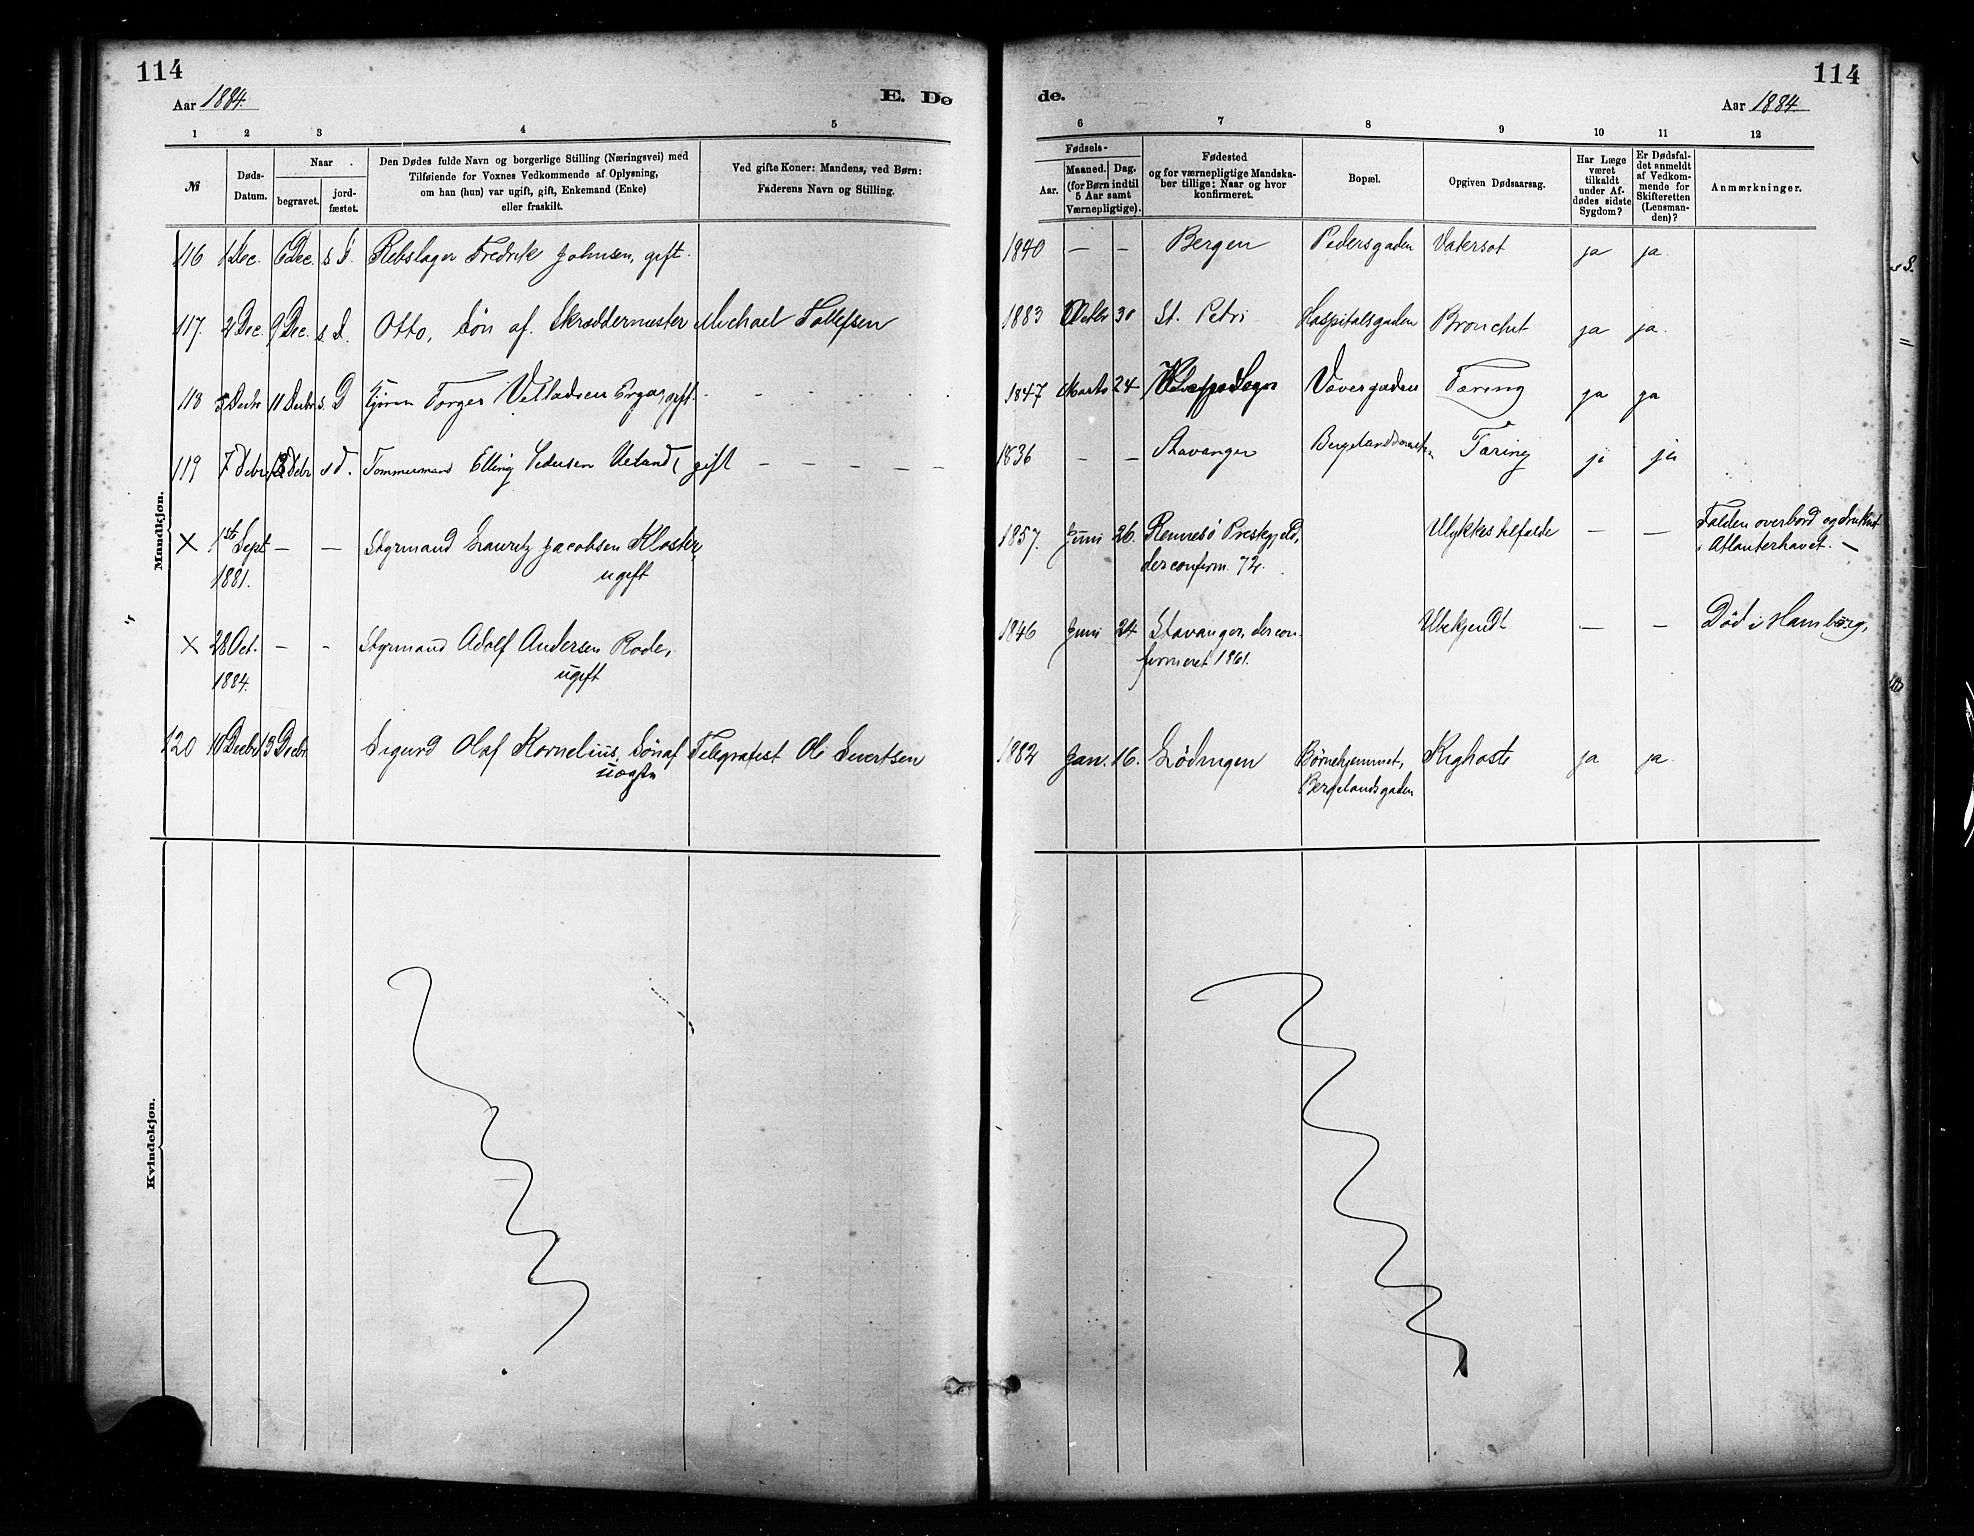 114
Aar 1884.
E. Dø
1 2 3 4 5
№
Døds-
Datum.
Naar
begravet.
jord-
fæstet.
Den Dødes fulde Navn og borgerlige Stilling (Næringsvei) med
Tilføiende for Voxnes Vedkommende af Oplysning,
om han (hun) var ugift, gift, Enkemand (Enke)
eller fraskilt.
Ved gifte Koner: Mandens, ved Børn:
Faderens Navn og Stilling.
Mandkjøn.
116 1 Dec. 6 Dec. s. D. Rebslager Fredrik Johnsen, gift.
117. 2 Dec. 9 Dec. s. D. Otto, Søn af Skræddermester Michael Tollefsen
118 5 Decbr 11 Decbr s. D Torger Erga, gift. - - - - -
119 7 Debr 13 Debr s d. Tømmermand Elling Pedersen Ueland, gift - - - - -
× 1st Sept - - Styrmand Lauritz Jacobsen Kloster,
1881. ugift
× 28 Oct. - - Styrmand Adolf Andersen Rode,
1884. ugift
120 10 Decbr 13 Decbr. Sigurd Olaf Kornelius, Søn af Telegrafist Ole Sivertsen
uægte
Kvindekjøn.
114
de.
Aar 1884.
6 7 8 9 10 11 12
Fødsels-
Aar.
Maaned. Dag.
(for Børn indtil
5 Aar samt
Værnepligtige).
Fødested
og for værnepligtige Mandska-
ber tillige: Naar og hvor
konfirmeret.
Bopæl.
Opgiven Dødsaarsag.
Har Læge
været
tilkaldt
under Af-
dødes sidste
Sygdom?
Er Dødsfal-
det anmeldt
af Vedkom-
mende for
Skifteretten
(Lensman-
den)?
Anmærkninger.
1840 - - Bergen Pedersgaden Vatersot ja ja.
1883 Octbr 30 St. Petri Hospitalsgaden Bronchit ja ja.
1847 Marts 24 Vovergaden Tæring ja ja
1836 - - Stavanger Tæring ja ja
1857. Juni 26. Rennesø Prestegjeld, Ulykkestilfælde - - Falden overbord og druknet
der confirm. 72. i Atlanterhavet. -
1846 Juni 24 Stavanger, der con- Ubekjendt - - Død i Hamburg,
firmeret 1861.
1882 Jan. 16. Lødingen Børnehjemmet, Kighoste ja ja.
Bergelandsgaden